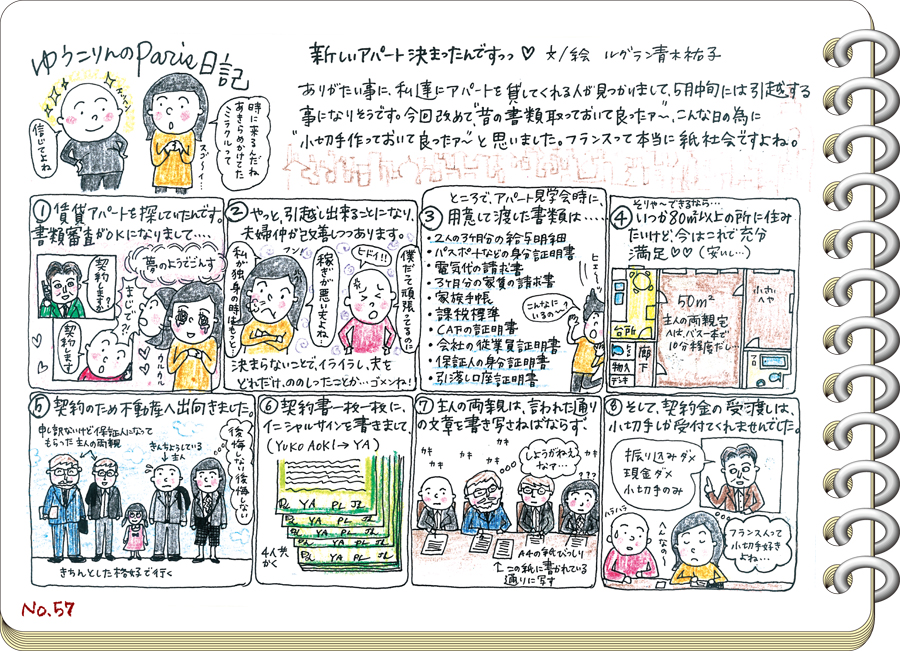 ゆうこりんのParis日記
新しいアパート決まったんですっ♡ 文/絵 ルグラン青木祐子
ありがたい事に、私達にアパートを貸してくれる人が見つかりまして、5月中旬には引越する
事になりそうです。今回改めて、"昔の書類取っておいて良ったァ〜、こんな日の為に
"小切手作っておいて良ったァ〜"と思いました。フランスって本当に紙社会ですよね。
信じてよね
時に来るんだね
あきらめかけてた
ミラクルって
スゲーイ…
①賃貸アパートを探していたんです。
書類審査がOKになりまして・・・・
契約しますか?
契約します
まじで?!
夢のようでごんす
ウルウル
②やっと、引越し出来ることになり、
夫婦仲が改善しつつあります。
私が独身の時はもっと
プンプン
稼ぎが悪い夫よね
ヒドイ!!
僕だって頑張ってるのに
決まらないことで、イライラし、夫を
どれだけ、ののしったことか…ゴメンね!
ところで、アパート見学会時に、
③用意して渡した書類は・・・・・
・2人の3ヶ月分の給与明細
・パスポートなどの身分証明書
・電気代の請求書
・3ヶ月分の家賃の請求書
・家族手帳
・課税標準
・CAFの証明書
・会社の従業員証明書
・保証人の身分証明書
・引落し口座証明書
ヒェ〜ッ
こんなにいるの〜
そりゃ〜できるなら…
④いつか80m²以上の所に住み
たいけど、今はこれで充分
満足♡♡(安いし…)
50m²
主人の両親宅
へはバス一本で
10分程度だし…
小さいへや
台所
物入
廊下
デッキ
⑤契約のため不動産へ出向きました。
申し訳ないけど保証人になって
もらった主人の両親
きんちょうしている
主人
後悔しない後悔しない
きちんとした格好で行く
⑥契約書一枚一枚に、
イニシャルサインを書きまして、
(YUKO AOKI→YA)
PL YA PL JL
YA PL JL
YA PL JL
YA PL JL
PL YA PL JL
4人共
かく
⑦主人の両親は、言われた通り
の文章を書き写さねばならず、
カキ カキ
カキ
カキ
しょうがねえ
なァ…
???
A4の紙びっしり
↑この紙に書かれている
通りに写す
⑧そして、契約金の受渡しは、
小切手しか受付てくれませんでした。
振り込みダメ
現金ダメ
小切手のみ
ハラハラ
へんなの〜
フランス人って
小切手好き
よね…
No.57